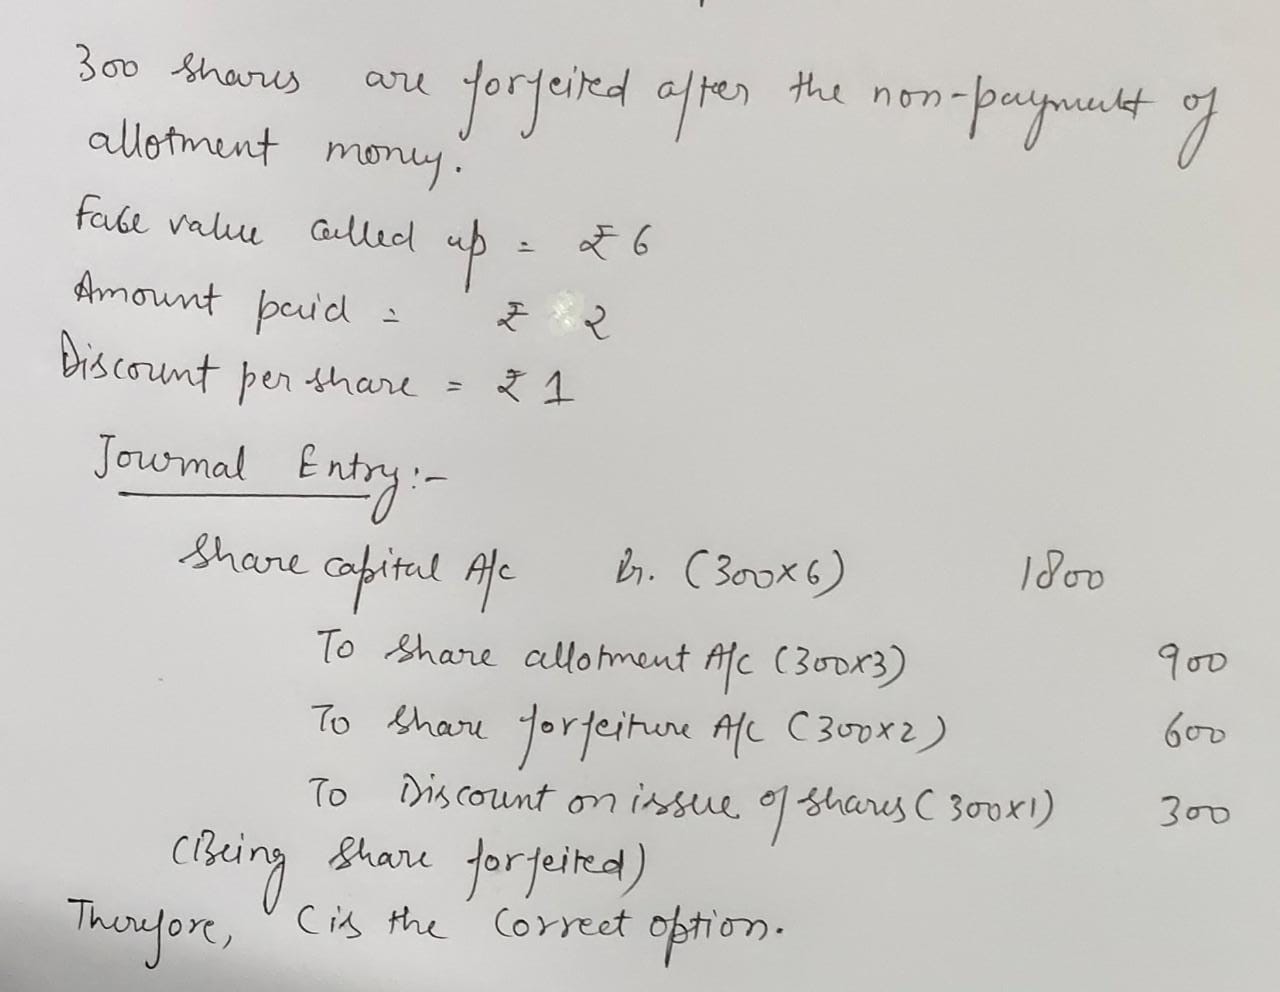 300 shares are forfeited after the non-payment of
allotment money.
Face value called up = ₹ 6
Amount paid = ₹ 2
Discount per share = ₹ 1
Journal Entry:-
Share capital A/c Dr. (300×6) 1800
To Share allotment A/c (300×3) 900
To Share forfeiture A/c (300×2) 600
To Discount on issue of shares (300×1) 300
(Being Share forfeited)
Therefore, C is the correct option.